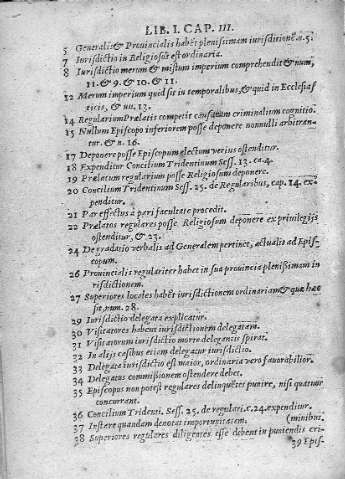 LIB. I. CAP. III.
5 Generalis & Provincialis habet plenissimam iurisditionē. n. 5.
7 Iurisdictio in Religiosos est ordinaria.
8 Iurisdictio merum & mistum imperium comprehendit & num.
11. & 9. & 10. & 11.
12 Merum imperium quid sit in temporalibus, & quid in Ecclesias
ticis, & nu. 13.
14 Regularium Prælatis competit causarum criminalium cognitio.
15 Nullum Episcopo inferiorem posse deponere nonnulli arbitran-
tur, & n. 16.
17 Deponere posse Episcopum electum verius ostenditur.
18 Expenditur Concilium Tridentinum Sess. 13. ca. 4.
19 Prælatum regularium posse Religiosum deponere.
20 Concilium Tridentinum Sess. 25. de Regularibus, cap. 14. ex-
penditur.
21 Par effectus à pari facultate procedit.
22 Prælatos regulares posse Religiosum deponere ex privilegijs
ostenditur, & 23.
24 Degradatio verbalis ad Generalem pertinet, actualis ad Epis-
copum.
26 Provincialis regulariter habet in sua provincia plenissimam iu
risdictionem.
27 Superiores locales habēt iurisdictionem ordinariam & quæ hæc
sit num. 28.
29 Iurisdictio delegata explicatur.
30 Visitatores habent iurisdictionem delegatam.
31 Visitatorum iurisdictio morte delegantis spirat.
32 In alijs casibus etiam delegatur iurisdictio.
33 Delegata iurisdictio est maior, ordinaria vero favorabilior.
34 Delegatus commissionem ostendere debet.
35 Episcopus non potest regulares delinquētes punire, nisi quatuor
concurrant.
36 Concilium Trident. Sess. 25. de regulari. c. 24. expenditur.
37 Instare quandam denotat importunitatem.
(minibus.
38 Superiores regulares diligentes esse debent in puniendis cri-
39 Epis-